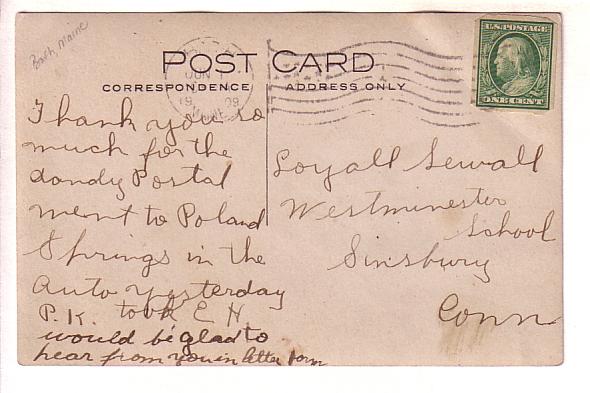 Bath, Maine
POST CARD
CORRESPONDENCE
ADDRESS ONLY
JUN 1
09
ONE CENT
Thank you so
much for the
dandy Postal
went to Poland
Springs in the
Auto yesterday
P.K. took E H
would be glad to
hear from you in letter form
Loyall Sewall
Westminester
School
Simsbury
Conn